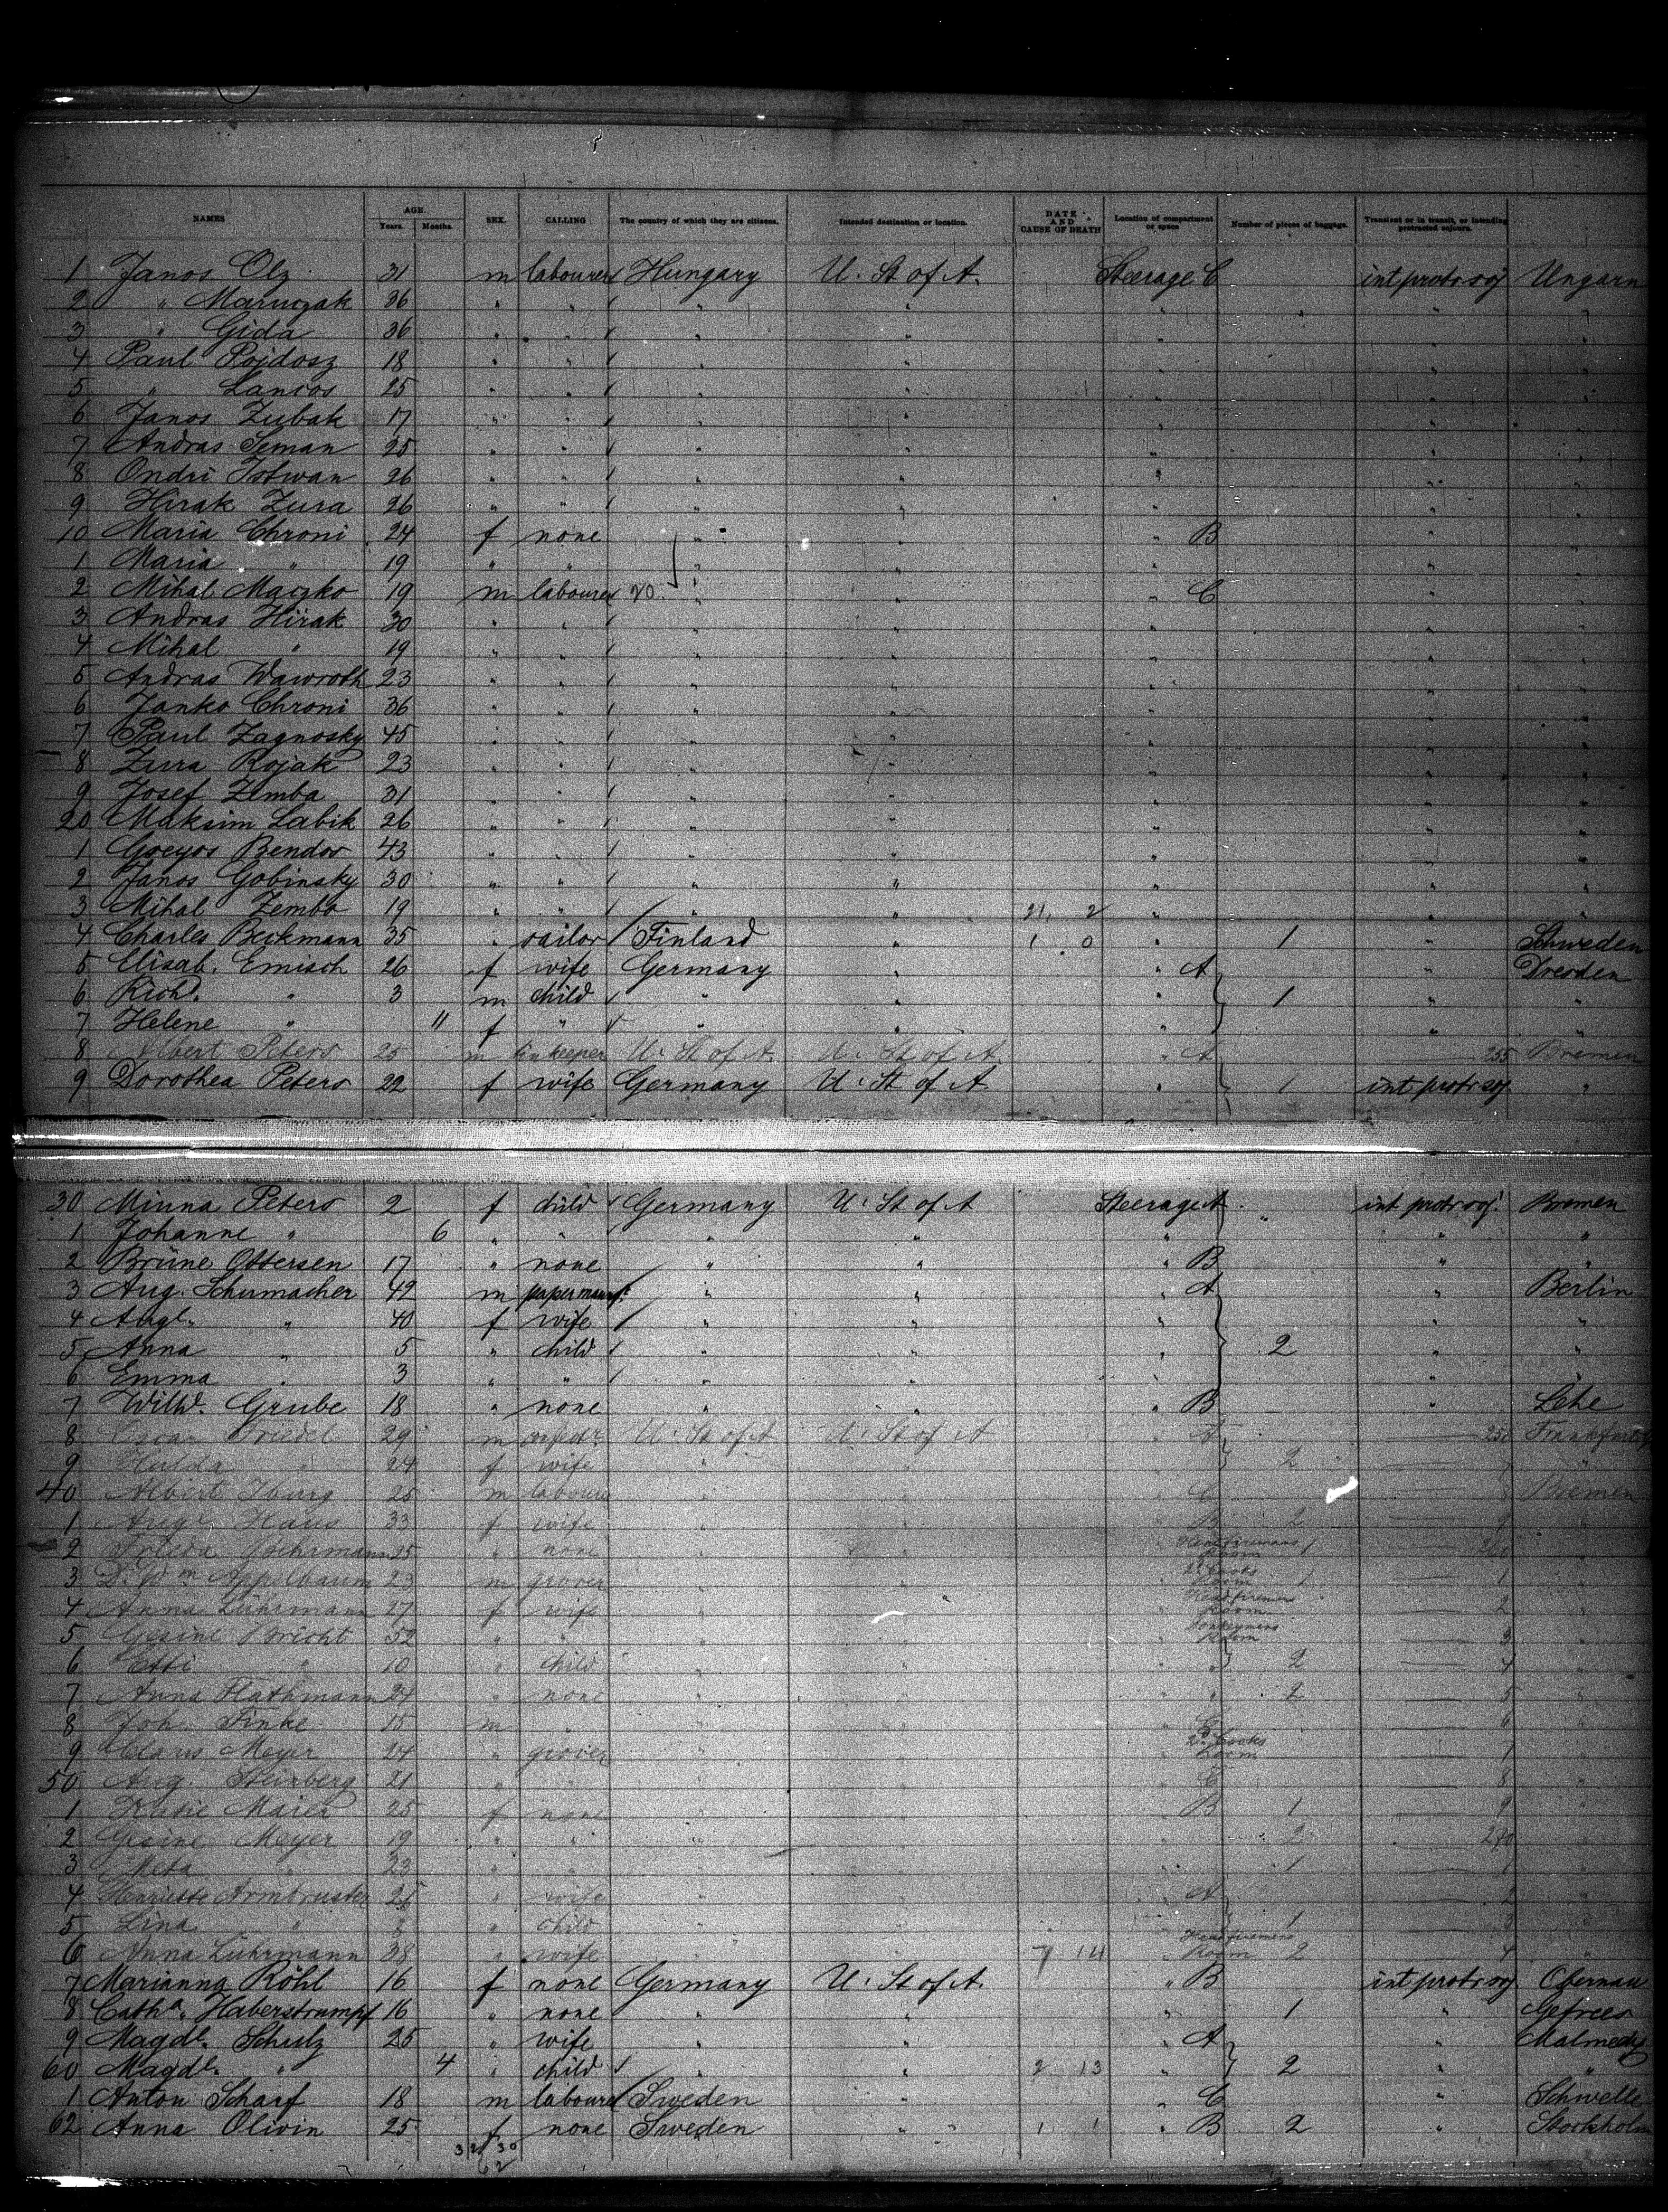 NAMES AGE Years. Months. SEX. CALLING The country of which they are citizens. Intended destination or location. DATE AND CAUSE OF DEATH Location of compartment or space Number of pieces of baggage. Transient or in transit, or intending protracted sojourn.
1 Janos Olz 31 m labourer Hungary U. St of A. Steerage C int protr soj Ungarn
2 " Maruczak 36 " " " " " " "
3 " Gida 36 " " " " " " "
4 Paul Pojdosz 18 " " " " " " "
5 " Lancos 25 " " " " " " "
6 Janos Zubak 17 " " " " " " "
7 Andras Seman 25 " " " " " " "
8 Ondri Istwan 26 " " " " " " "
9 Hirak Zura 26 " " " " " " "
10 Maria Chroni 24 f none " " " B " "
1 Maria " 19 " " " " " " "
2 Mihal Maczko 19 m labourer 20 " " " C " "
3 Andras Hirak 30 " " " " " " "
4 Mihal " 19 " " " " " " "
5 Andras Wawroth 23 " " " " " " "
6 Janko Chroni 36 " " " " " " "
7 Paul Zagnosky 45 " " " " " " "
8 Zura Rojak 23 " " " " " " "
9 Josef Zemba 31 " " " " " " "
20 Maksim Labik 26 " " " " " " "
1 Goeyos Bendos 43 " " " " " " "
2 Janos Gobinsky 30 " " " " " " "
3 Mihal Zembo 19 " " " " 21 2 " " "
4 Charles Beckmann 35 " sailor Finland " 1 0 " 1 " Schweden
5 Elisab. Emisch 26 f wife Germany " " A " Dresden
6 Rich. " 3 m child " " " 1 " "
7 Helene " 11 f " " " " " "
8 Albert Peters 25 m barkeeper U. St of A. U. St of A. " A 255 Bremen
9 Dorothea Peters 22 f wife Germany U. St of A " 1 int protr soj "
30 Minna Peters 2 f child Germany U. St of A Steerage A " int protr soj. Bremen
1 Johanne " 6 " " " " " " "
2 Brüne Ottersen 17 " none " " " B " "
3 Aug. Schumacher 49 m papermanuf. " " " A " Berlin
4 Augl. " 40 f wife " " " " "
5 Anna " 5 " child " " " 2 " "
6 Emma " 3 " " " " " "
7 Wilhl. Grube 18 " none " " " B " Lehe
8 Oscar Friedel 29 m U. St of A U. St of A " A Frankfurt
9 Hulda " 24 f wife " " " 2 "
40 Albert Iburg 25 m labourer " " " C 8 Bremen
1 Augl. Haus 33 f wife " " " B 2 9 "
2 Frieda Behrmann 25 " none " " " Headfiremans Room 1 260 "
3 D. Wm Appelbaum 23 m grocer " " " 2d Cooks Room 1 1 "
4 Anna Lührmann 27 f wife " " " Headfiremans Room 2 "
5 Gesine Bricht 52 " " " " " Donkeymans Room 3 "
6 Etti " 10 " child " " " " 2 4 "
7 Anna Flathmann 24 " none " " " " 2 5 "
8 Joh. Finke 15 m " " " " C 6 "
9 Claus Meyer 24 " grocer " " " 2d Cooks Room "
50 Aug. Steinberg 21 " " " " " C 8 "
1 Katie Maier 25 f none " " " B 1 9 "
2 Gesine Meyer 19 " " " " " " 2 270 "
3 Meta " 23 " " " " " " 1 "
4 Henriette Armbruster 25 " wife " " " A 2 "
5 Lina " 2 " child " " " 1 3 "
6 Anna Lührmann 38 " wife " " 7 14 " Headfiremens Room 2 4 "
7 Marianna Röhl 16 f none Germany U. St of A. " B int protr soj Obernau
8 Catha. Haberstrumpf 16 " none " " " " 1 " Gefrees
9 Magdl. Schulz 25 " wife " " " A " Malmedy
60 Magdl. " 4 " child " " 2 13 " 2 " "
1 Anton Scharf 18 m labourer Sweden " " C " Schwelle
62 Anna Olivin 25 f none Sweden " 1 1 " B 2 " Stockholm
32/30
62